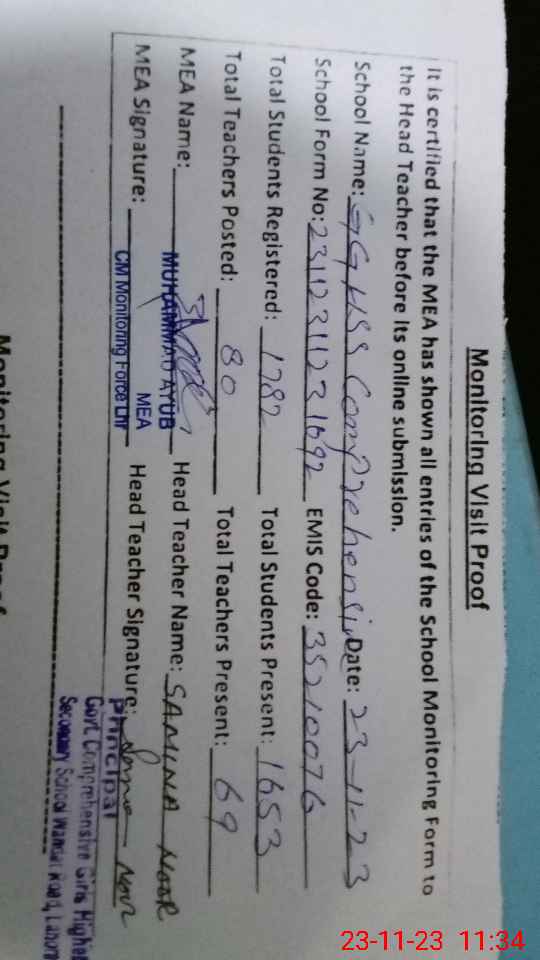 Monitoring Visit Proof
It is certified that the MEA has shown all entries of the School Monitoring Form to
the Head Teacher before its online submission.
School Name: GGHSS Comprehensive Date: 23-11-23
School Form No: 23112311231692 EMIS Code: 35210076
Total Students Registered: 1782 Total Students Present: 1653
Total Teachers Posted: 80 Total Teachers Present: 69
MEA Name: MUHAMMAD AYUB Head Teacher Name: SAMINA NOOR
MEA
MEA Signature: CM Monitoring Force Lhr Head Teacher Signature:
Principal
Govt. Comprehensive Girls Higher
Secondary School Wahdat Road, Lahore
Monitoring Visit Proof
23-11-23 11:34